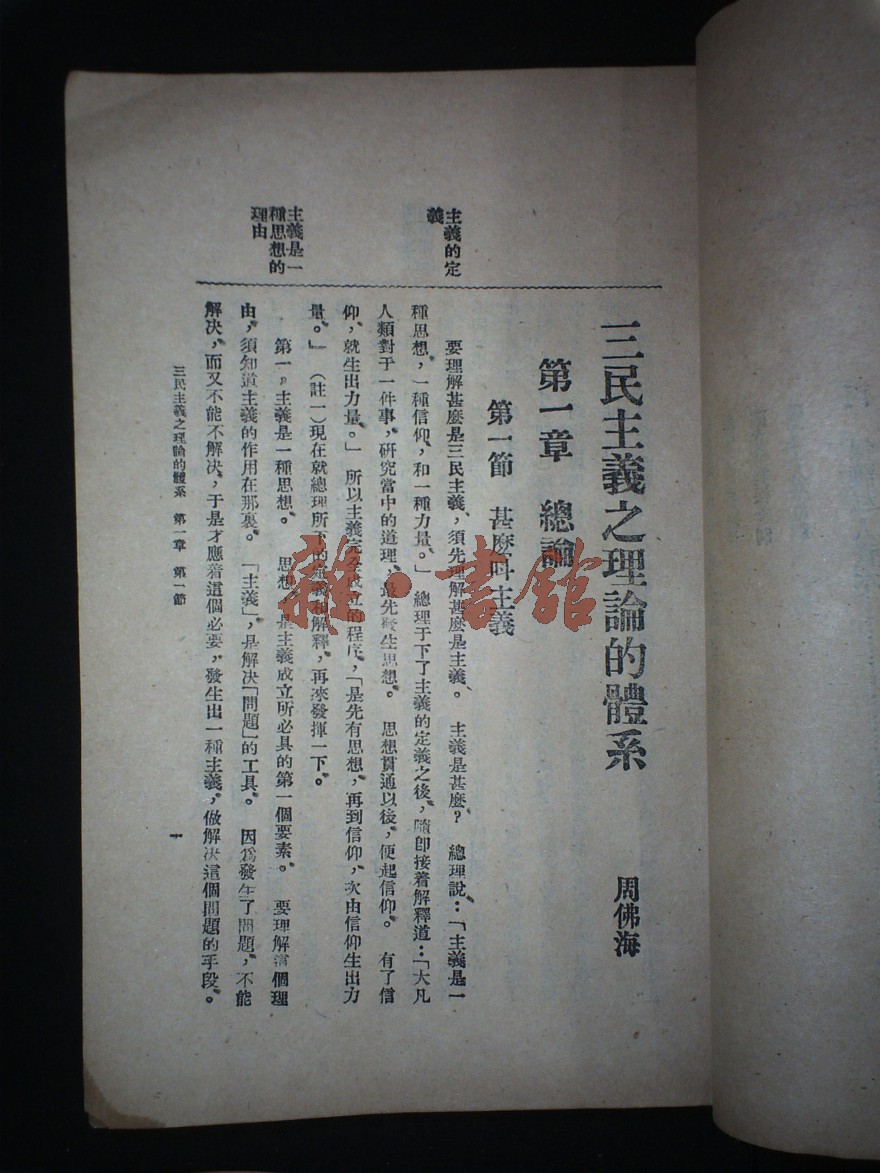 三民主義之理論的體系
周佛海
第一章　總論
第一節　甚麽叫主義
主義的定
義
要理解甚麽是三民主義、須先理解甚麽是主義。　主義是甚麽？　總理說：「主義是一
種思想，一種信仰，和一種力量。」總理于下了主義的定義之後，隨卽接着解釋道：「大凡
人類對于一件事，硏究當中的道理，最先發生思想。　思想貫通以後，便起信仰。　有了信
仰，就生出力量。」所以主義完全成立的程序，「是先有思想，再到信仰，次由信仰生出力
量。」（註一）現在就總理所下的定義和解釋，再來發揮一下。
主義是一
種思想的
理由
第一，主義是一種思想。　思想，是主義成立所必具的第一個要素。　要理解這個理
由，須知道主義的作用在那裏。　「主義」，是解決「問題」的工具。　因爲發生了問題，不能
解決，而又不能不解決，于是才應着這個必要，發生出一種主義，做解決這個問題的手段。
三民主義之理論的體系　第一章　第一節
一
雜·書館